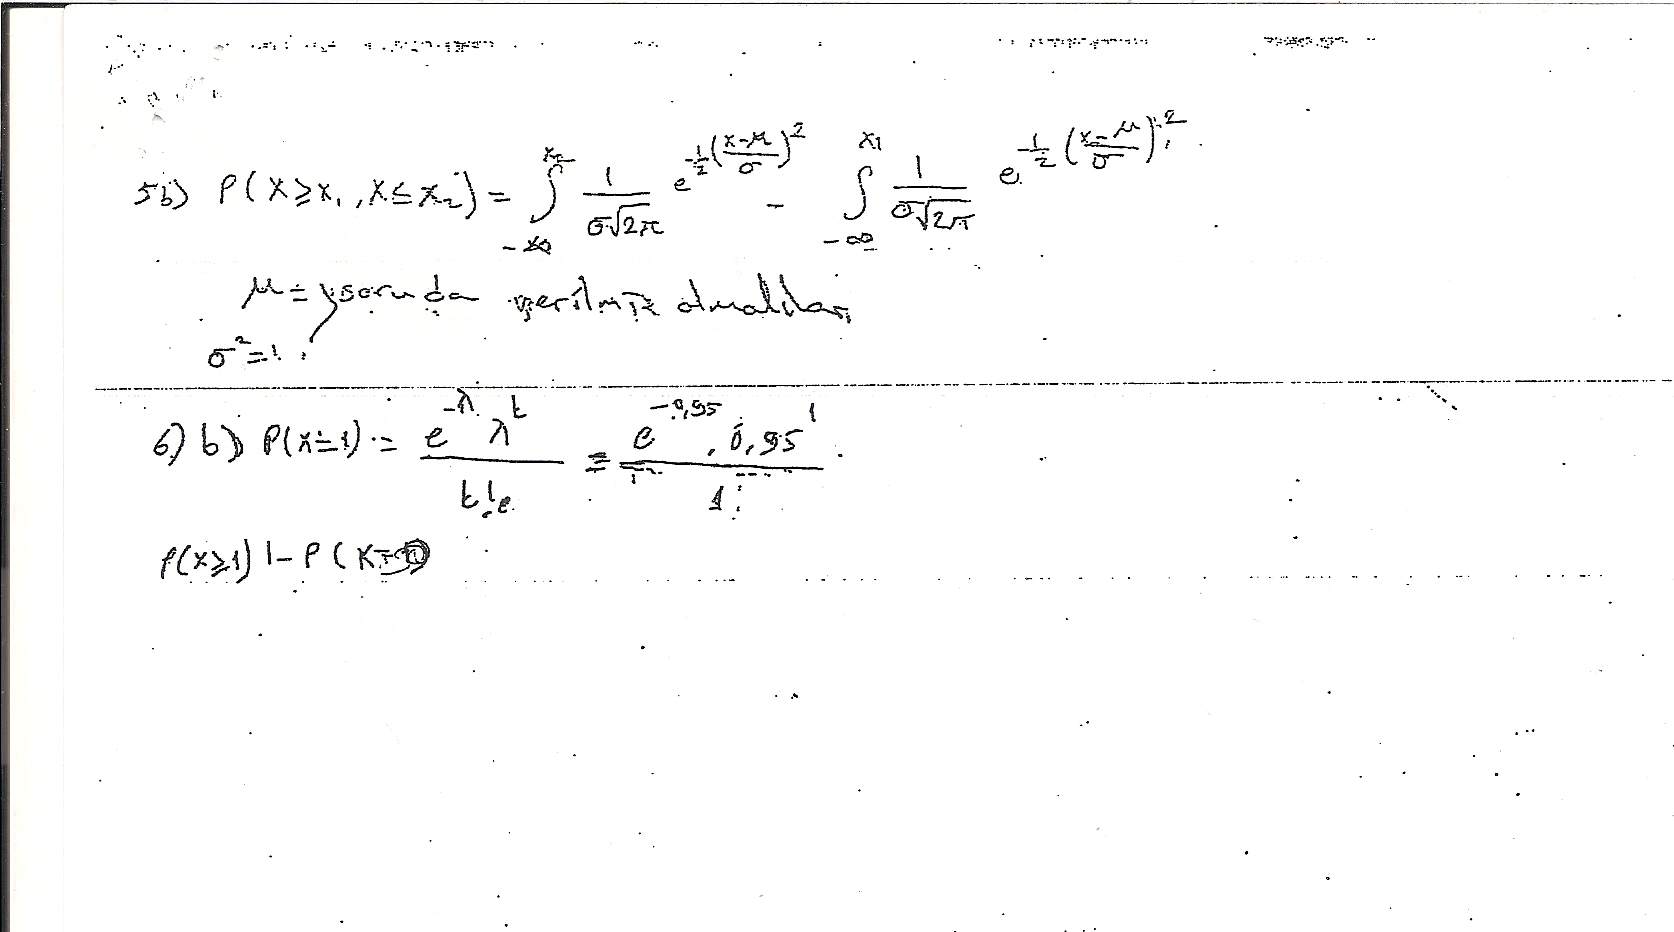 5b) P(X≥x₁, X≤x₂) = ∫_{-∞}^{x₂} 1/(σ√2π) e^{-1/2((x-μ)/σ)²} - ∫_{-∞}^{x₁} 1/(σ√2π) e^{-1/2((x-μ)/σ)²}
μ = soruda verilmiş olmalılar
σ² = !
6) b) P(x=1) = e^{-λ} λ^t / t! = e^{-0,95} . 0,95¹ / 1!
P(x≥1) 1-P(x=